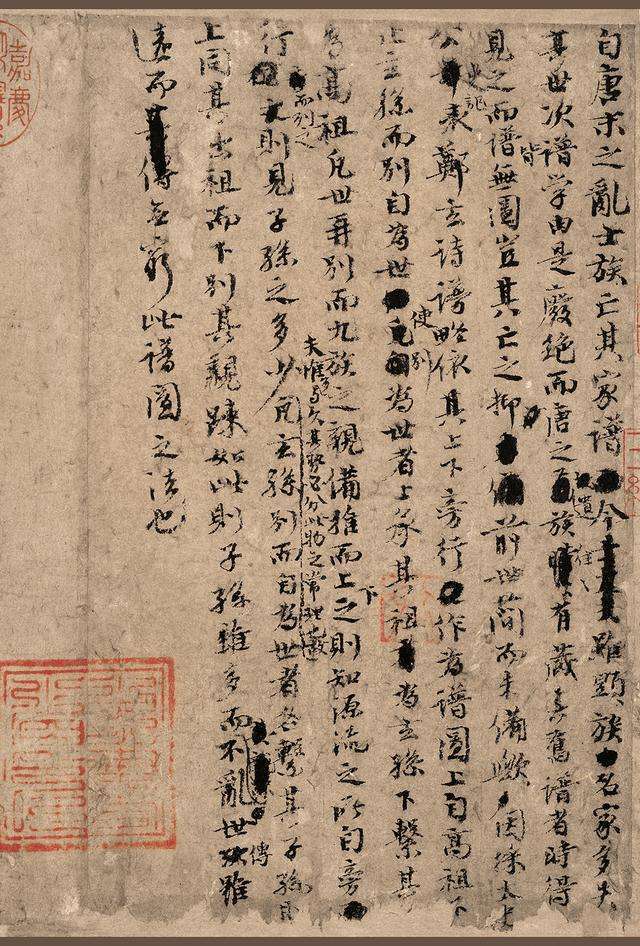 自唐末之亂士族亡其家譜今雖顯族名家多失
其世次譜学由是廢絶而唐之遺族往往有藏其舊譜者時得
見之而譜皆無圖豈其亡之抑前世簡而未備歟因採太史
公史記表鄭玄詩譜略依其上下旁行作為譜圖上自髙祖下
止玄孫而別自為世使別為世者上承其祖為玄孫下繫其
為髙祖凡世再別而九族之親備推而上下之則知源流之所自旁
行而列之則見子孫之多少夫惟多与久其勢必分此物之常理也凡玄孫別而自為世者各繫其子孫
上同其出祖而下別其親踈如此則子孫雖多而不亂世傳雖
遠而傳无窮此譜圖之法也